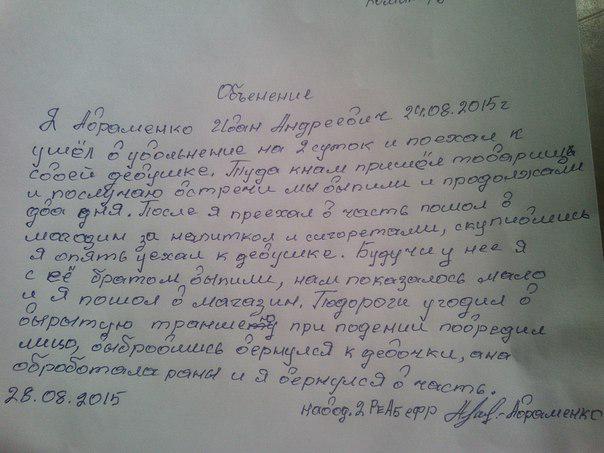 Объенение
Я Авраменко Иван Андреевич 24.08.2015г
ушёл в увольнение на 2 суток и поехал к
своей девушке. Туда кнам пришёл товарищь
и послучаю встречи мы выпили и продолжали
два дня. После я преехал в часть пошол в
магазин за напитком и сигоретами, скупившись
я опять уехал к девушке. Будучи у нее я
с её братом выпили, нам показалось мало
и я пошол в магазин. Подороги угодил в
вырытую траншею при подении повредил
лицо, выбровшись вернулся к девочки, ана
обработала раны и я вернулся в часть.
28.08.2015
навод. 2 РЕАБ ефр Авраменко